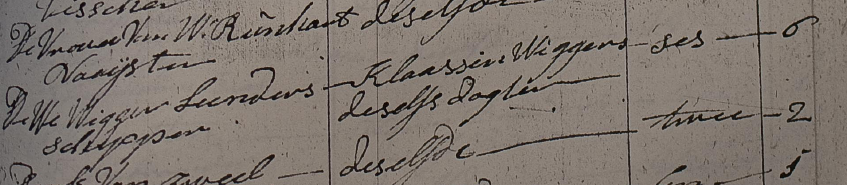 Visscher
De Vrouw Van W. Runhart deselfde
Vaaijster
De We Wigger Lunders - Klaassin Wiggers - ses - 6
schipper deselfs dogter
deselfde twee - 2
5